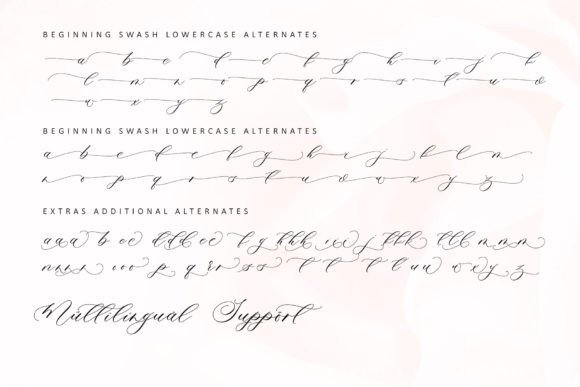 BEGINNING SWASH LOWERCASE ALTERNATES
a b c d e f g h i j k
l m n o p q r s t u v
w x y z
BEGINNING SWASH LOWERCASE ALTERNATES
a b c d e f g h i j k l m
n o p q r s t u v w x y z
EXTRAS ADDITIONAL ALTERNATES
Multilingual Support